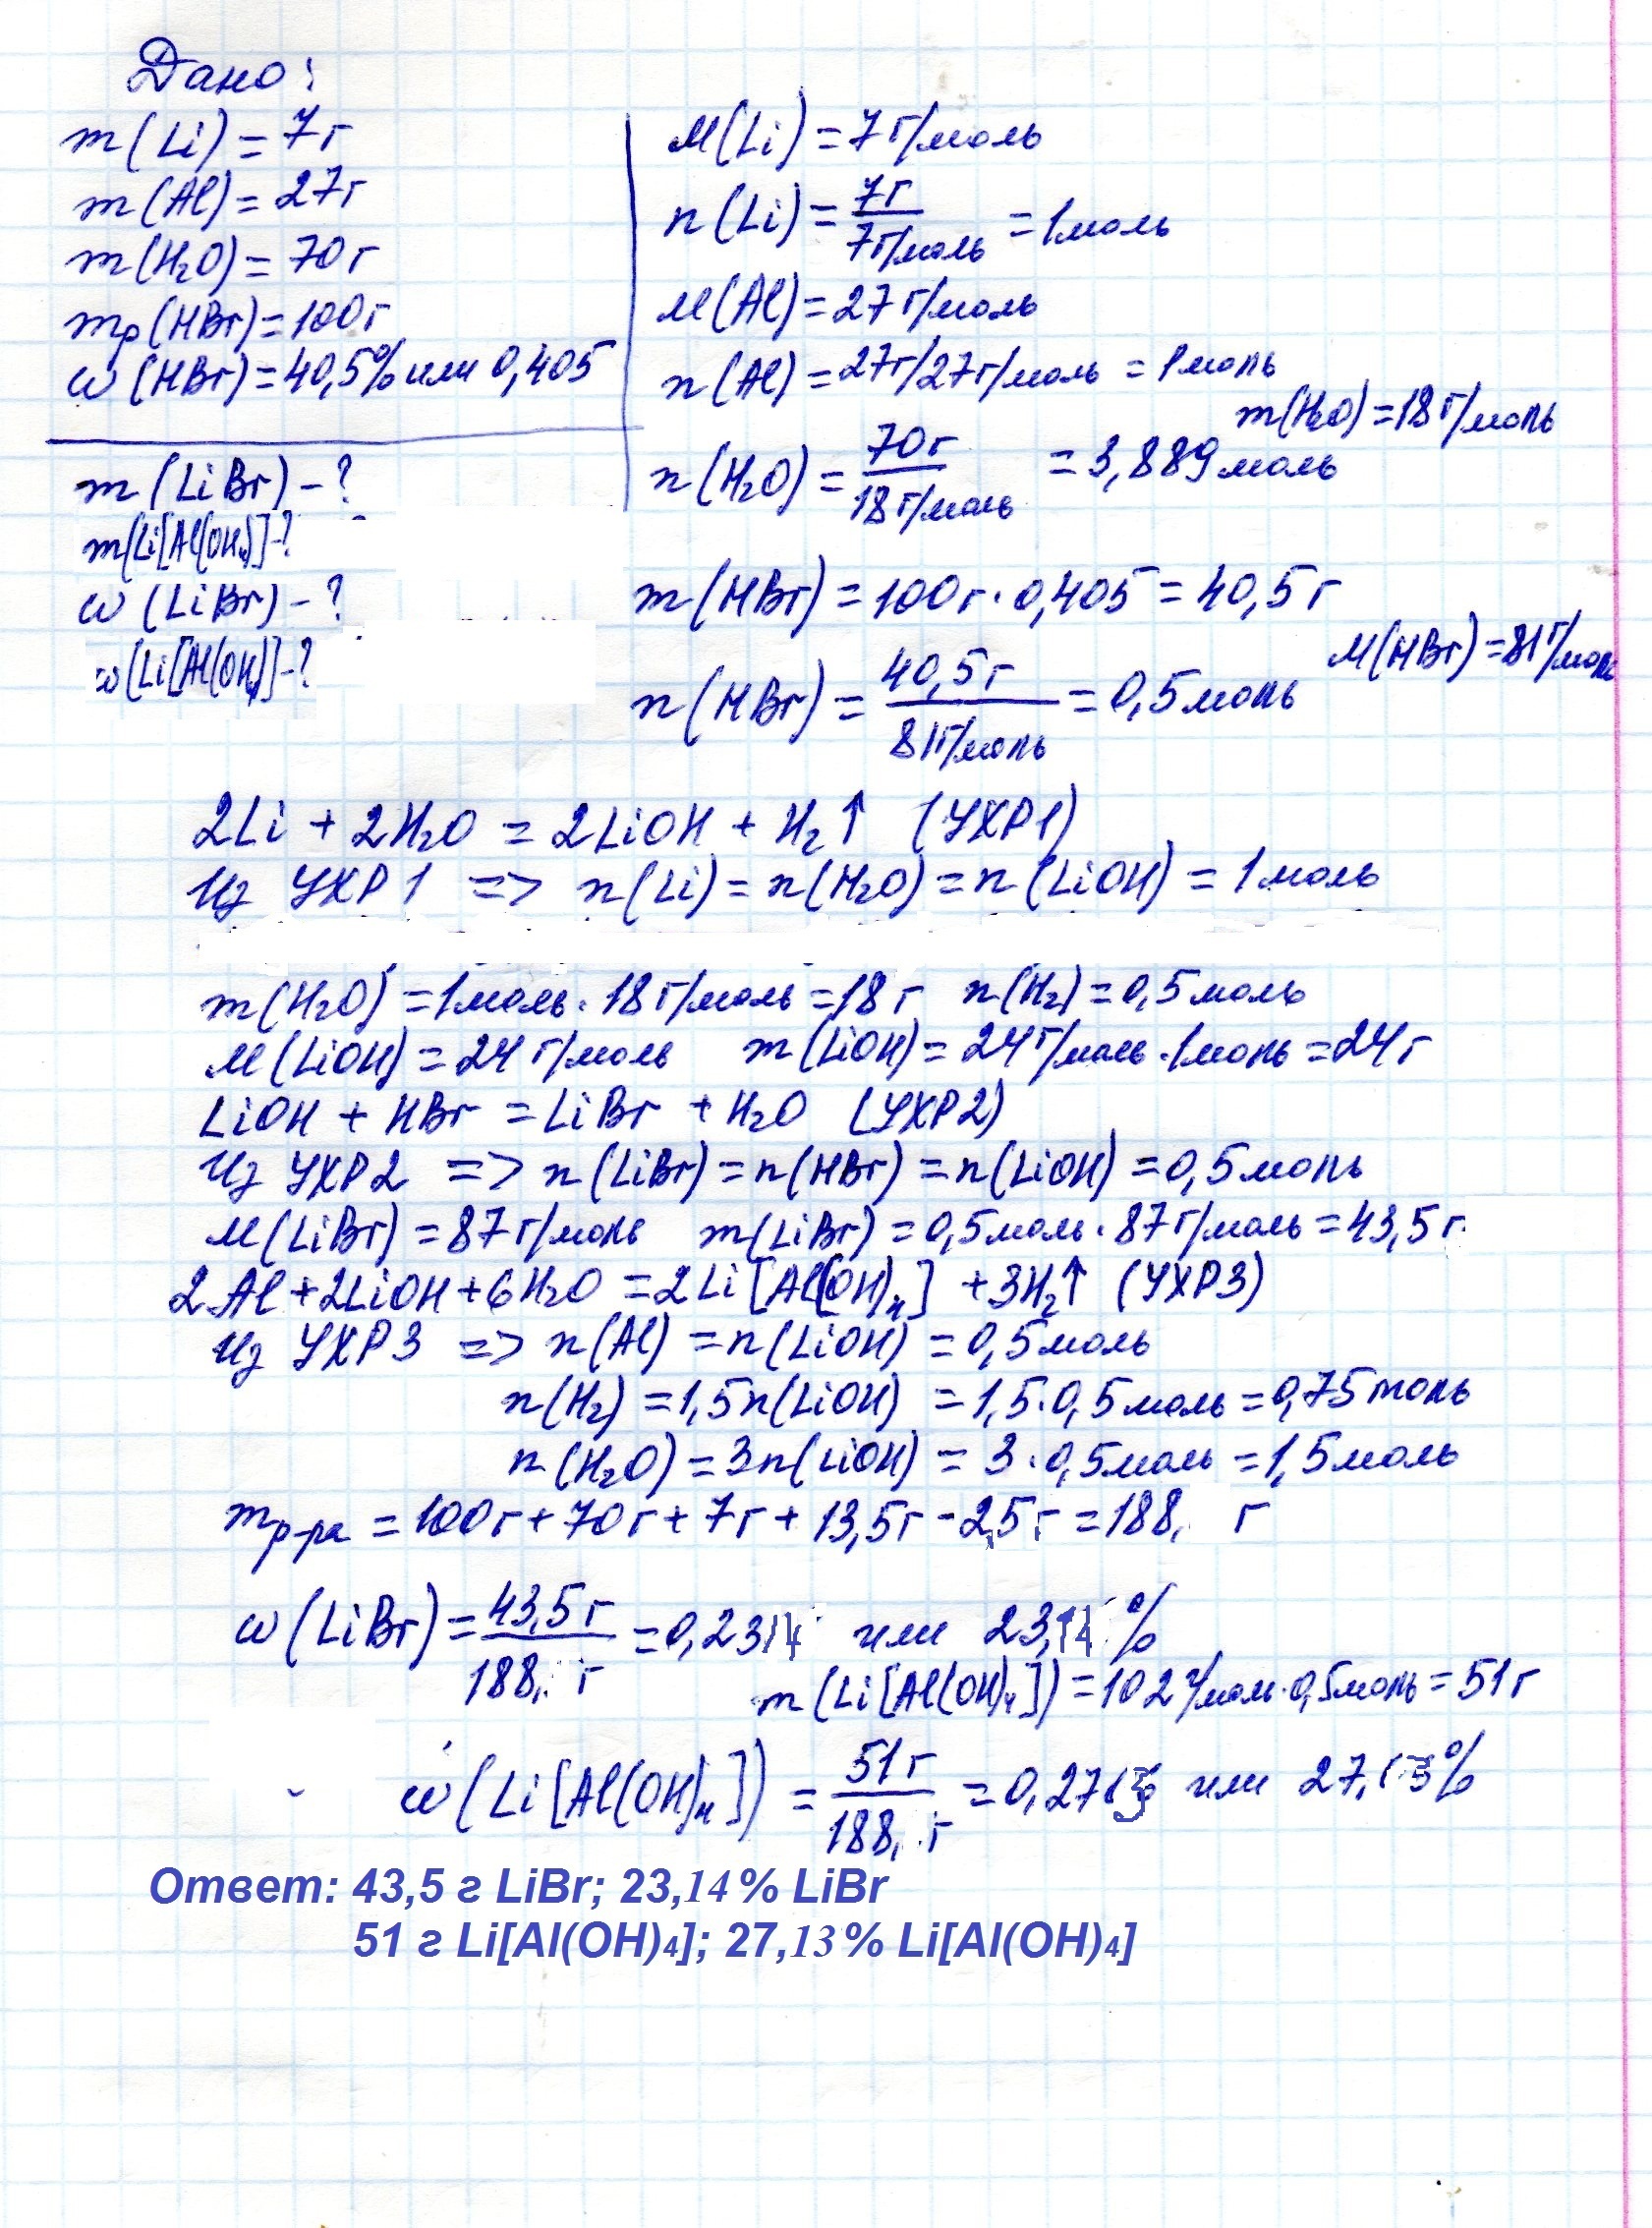 Дано:
m(Li) = 7г
m(Al) = 27г
m(H₂O) = 70г
mр(HBr) = 100г
ω(HBr) = 40,5% или 0,405
m(LiBr) - ?
m(Li[Al(OH₄)] - ?
ω(LiBr) - ?
ω(Li[Al(OH₄)] - ?
M(Li) = 7г/моль
n(Li) = 7г / 7г/моль = 1моль
M(Al) = 27г/моль
n(Al) = 27г/27г/моль = 1моль
m(H₂O) = 18г/моль
n(H₂O) = 70г / 18г/моль = 3,889моль
m(HBr) = 100г · 0,405 = 40,5г
M(HBr) = 81г/моль
n(HBr) = 40,5г / 81г/моль = 0,5моль
2Li + 2H₂O = 2LiOH + H₂↑ (УХР1)
Из УХР1 => n(Li) = n(H₂O) = n(LiOH) = 1моль
m(H₂O) = 1моль · 18г/моль = 18г n(H₂) = 0,5моль
M(LiOH) = 24г/моль m(LiOH) = 24г/моль · 1моль = 24г
LiOH + HBr = LiBr + H₂O (УХР2)
Из УХР2 => n(LiBr) = n(HBr) = n(LiOH) = 0,5моль
M(LiBr) = 87г/моль m(LiBr) = 0,5моль · 87г/моль = 43,5г
2Al + 2LiOH + 6H₂O = 2Li[Al(OH)₄] + 3H₂↑ (УХР3)
Из УХР3 => n(Al) = n(LiOH) = 0,5моль
n(H₂) = 1,5n(LiOH) = 1,5 · 0,5моль = 0,75моль
n(H₂O) = 3n(LiOH) = 3 · 0,5моль = 1,5моль
mр-ра = 100г + 70г + 7г + 13,5г - 2,5г = 188, г
ω(LiBr) = 43,5г / 188, г = 0,2314 или 23,14%
m(Li[Al(OH)₄]) = 102г/моль · 0,5моль = 51г
ω(Li[Al(OH)₄]) = 51г / 188, г = 0,2713 или 27,13%
Ответ: 43,5 г LiBr; 23,14% LiBr
51 г Li[Al(OH)₄]; 27,13% Li[Al(OH)₄]